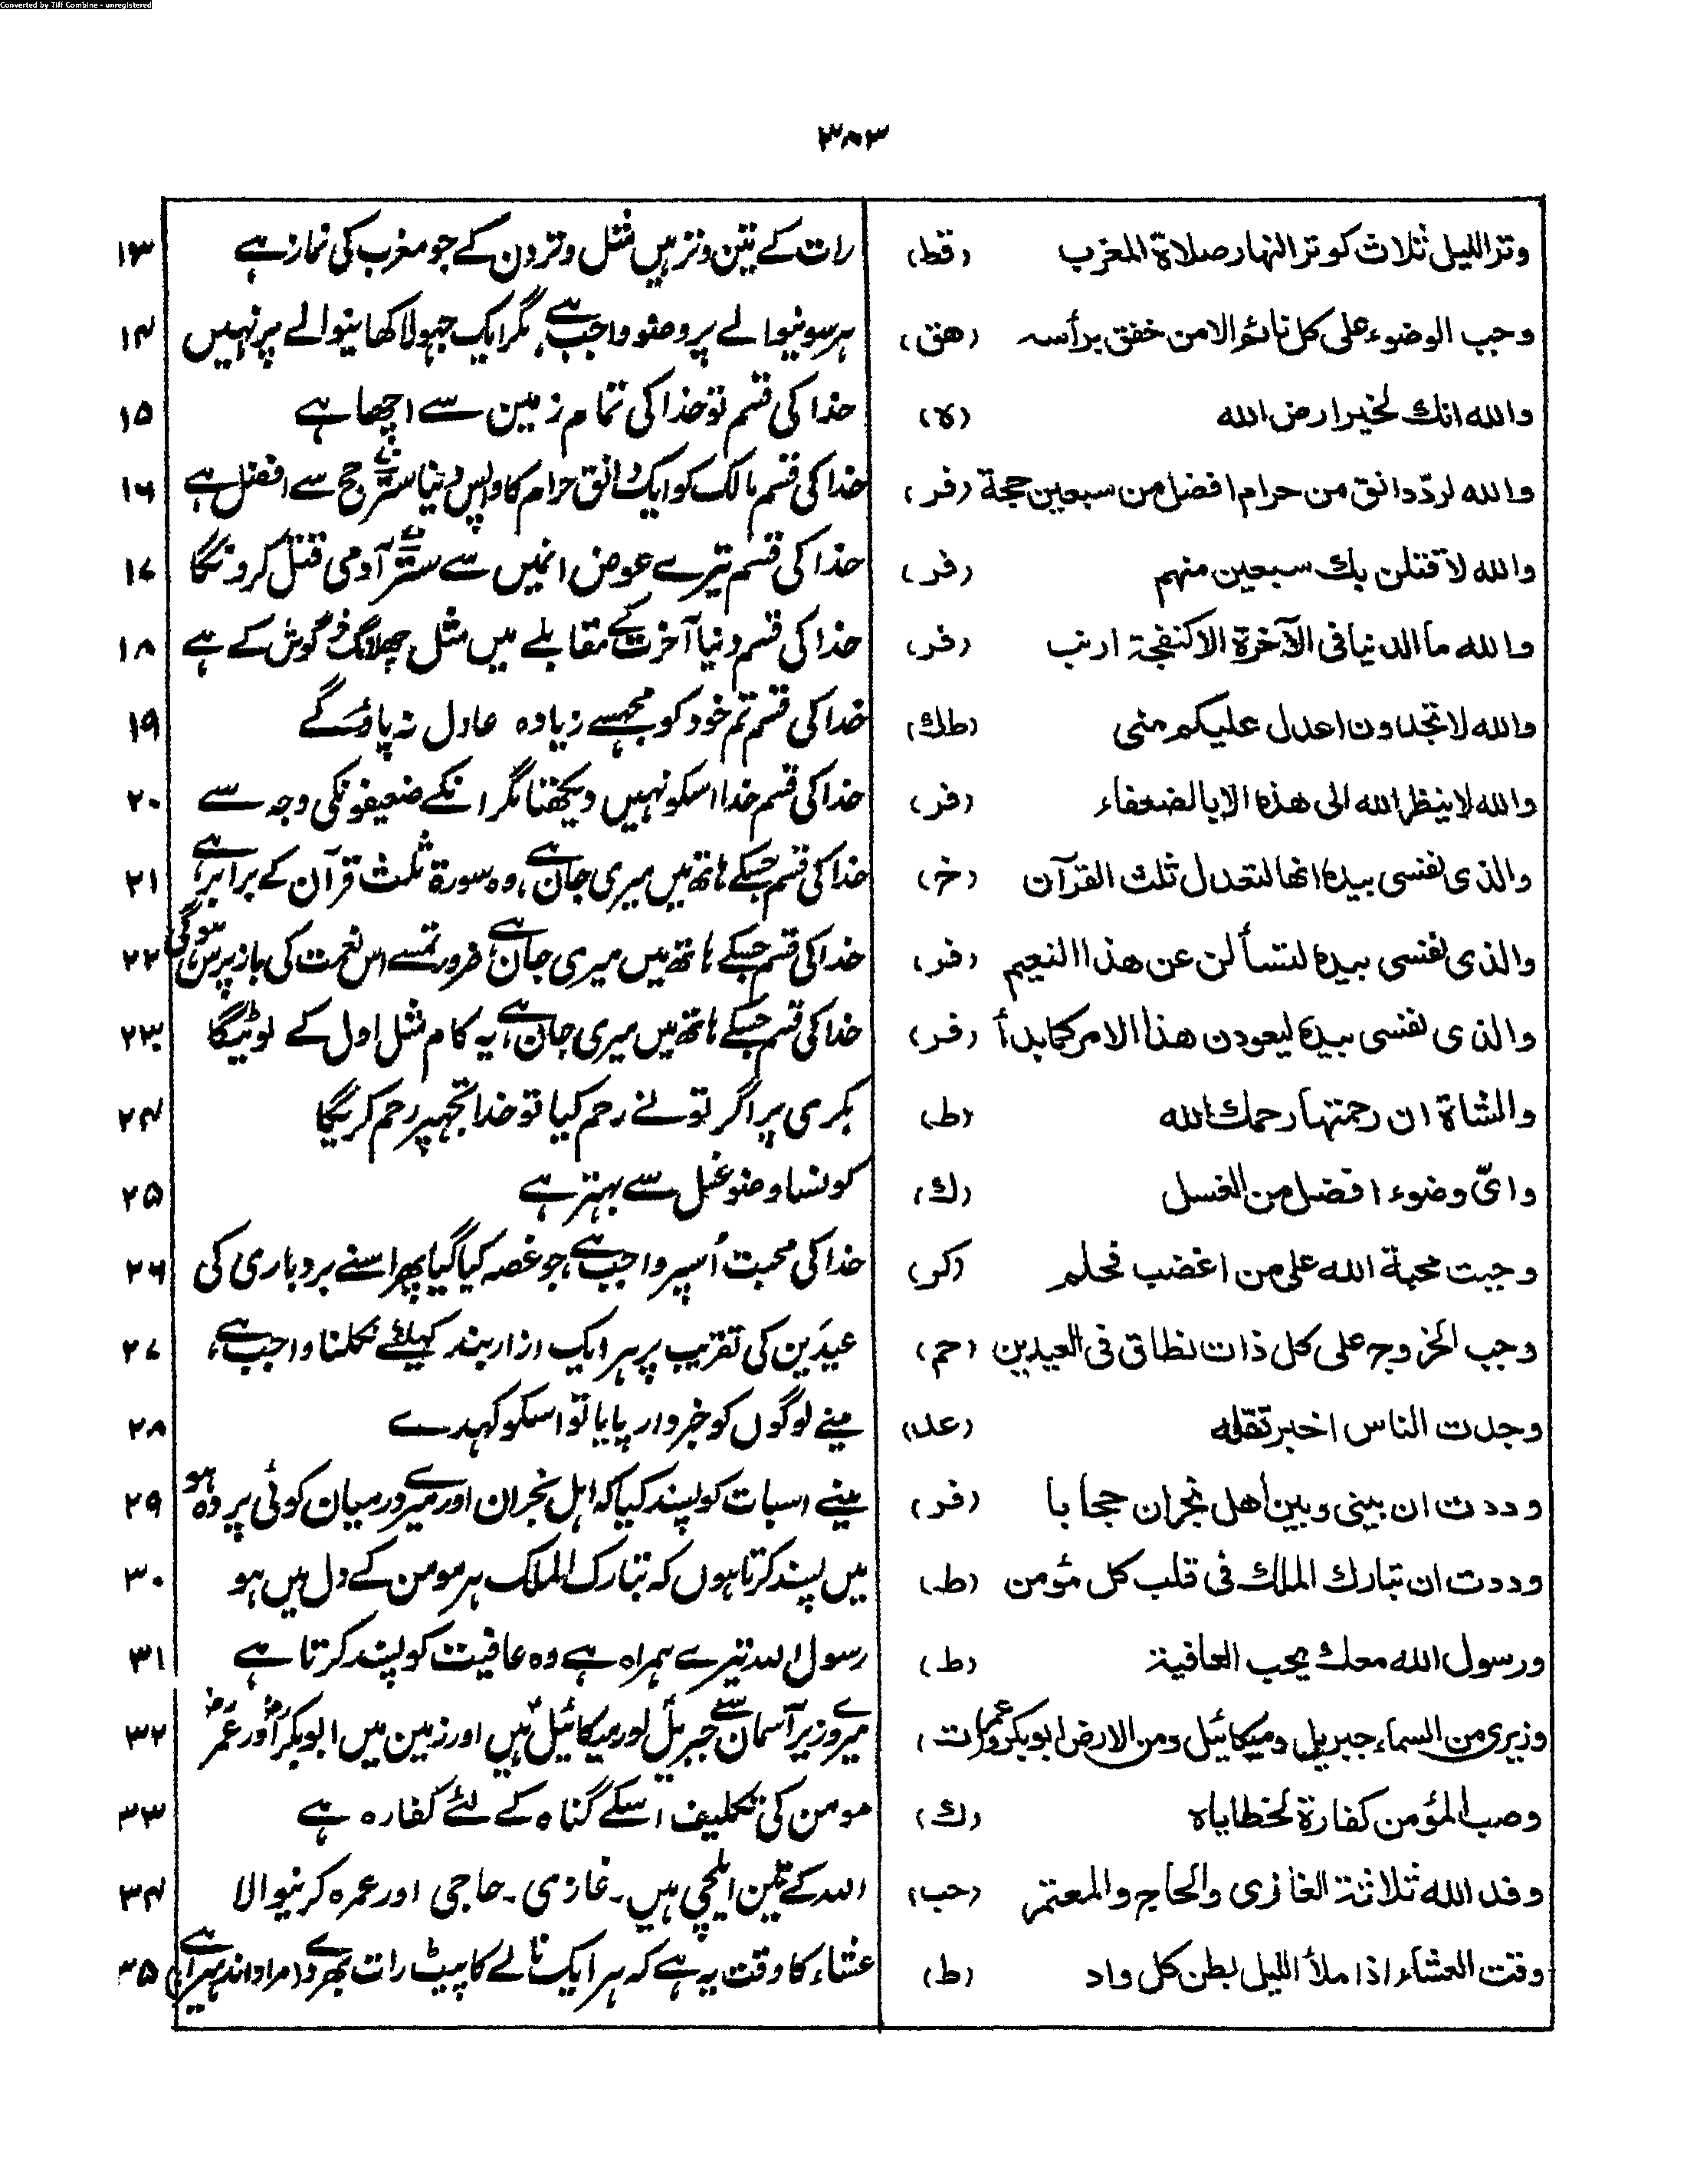 Converted by Tiff Combine - unregistered
۳۸۳
وتر الليل ثلاث كوتر النهار صلاة المغرب (قط) رات کے تین وتر ہیں مثل وتر دن کے جو مغرب کی نماز ہے ۱۳
وجب الوضوء على كل نائم الا من خفق برأسه (هق) ہر سونیوالے پر وضو واجب ہے، مگر ایک جہولا کھانیوالے پر نہیں ۱۴
والله انك لخير ارض الله (ه) خدا کی قسم تو خدا کی تمام زمین سے اچھا ہے ۱۵
والله لردّ دانق من حرام افضل من سبعين حجة (فر) خدا کی قسم مالک کو ایک دانق حرام کا واپس دینا ستّر حج سے افضل ہے ۱۶
والله لاقتلن بك سبعين منهم (فر) خدا کی قسم تیرے عوض انمیں سے ستّر آدمی قتل کرونگا ۱۷
والله ما الدنيا فى الآخرة الا كنفجة ارنب (فر) خدا کی قسم دنیا آخرت کے مقابلے میں مثل چھلانگ خرگوش کے ہے ۱۸
والله لا تجدون اعدل عليكم منى (طك) خدا کی قسم تم خود کو مجھسے زیادہ عادل نہ پاؤگے ۱۹
والله لا ينظر الله الى هذه الا بالضعفاء (فر) خدا کی قسم خدا اسکو نہیں دیکھتا مگر انکے ضعیفونکی وجہ سے ۲۰
والذى نفسى بيده انها لتعدل ثلث القرآن (خ) خدا کی قسم جسکے ہاتھ میں میری جان ہے، وہ سورۃ ثلث قرآن کے برابر ہے ۲۱
والذى نفسى بيده لتسألن عن هذا النعيم (فر) خدا کی قسم جسکے ہاتھ میں میری جان ہے، ضرور تمسے اس نعمت کی بازپرس ہوگی ۲۲
والذى نفسى بيده ليعودن هذا الامر كما بدأ (فر) خدا کی قسم جسکے ہاتھ میں میری جان ہے یہ کام مثل اول کے لوٹیگا ۲۳
والشاة ان رحمتها رحمك الله (ط) بکری پر اگر تونے رحم کیا تو خدا تجھپر رحم کریگا ۲۴
واىّ وضوء افضل من الغسل (ك) کونسا وضو غسل سے بہتر ہے ۲۵
وجبت محبة الله على من اغضب فحلم (كر) خدا کی محبت اُسپر واجب ہے، جو غصہ کیا گیا پھر اسنے بردباری کی ۲۶
وجب الخروج على كل ذات نطاق فى العيدين (حم) عیدَین کی تقریب پر ہر ایک ازاربند کیلئے نکلنا واجب ہے، ۲۷
وجدت الناس اخبر تقله (عد) مینے لوگوں کو خبردار پایا تو اسکو کہدے ۲۸
وددت ان بينى وبين اهل نجران حجابا (فر) مینے اسبات کو پسند کیا کہ اہل نجران اور میرے درمیان کوئی پردہ ہو ۲۹
وددت ان تبارك الملك فى قلب كل مؤمن (ط) میں پسند کرتا ہوں کہ تبارک الملک ہر مومن کے دل میں ہو ۳۰
ورسول الله معك يحب العافية (ط) رسول اللہ تیرے ہمراہ ہے وہ عافیت کو پسند کرتا ہے ۳۱
وزيرى من السماء جبريل وميكائيل ومن الارض ابوبكر وعمر (ت) میرے وزیر آسمان سے جبریل اور میکائیل ہیں اور زمین میں ابوبکر اور عمر ۳۲
وصب المؤمن كفارة لخطاياه (ك) مومن کی تکلیف اسکے گناہ کے لئے کفارہ ہے ۳۳
وفد الله ثلاثة الغازى والحاج والمعتمر (حب) اللہ کے تین ایلچی ہیں۔ غازی۔ حاجی اور عمرہ کرنیوالا ۳۴
وقت العشاء اذا ملأ الليل بطن كل واد (ط) عشاء کا وقت یہ ہے کہ ہر ایک نالے کا پیٹ رات بھردے (مراد اندھیرا ہے) ۳۵